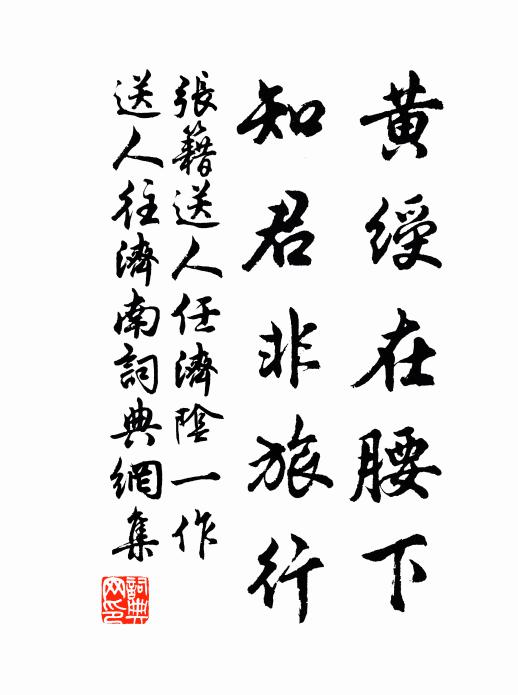 黃綬在腰下
知君非旅行
張籍送人任濟陰一作
送人往濟南詞典網集
詞典網印